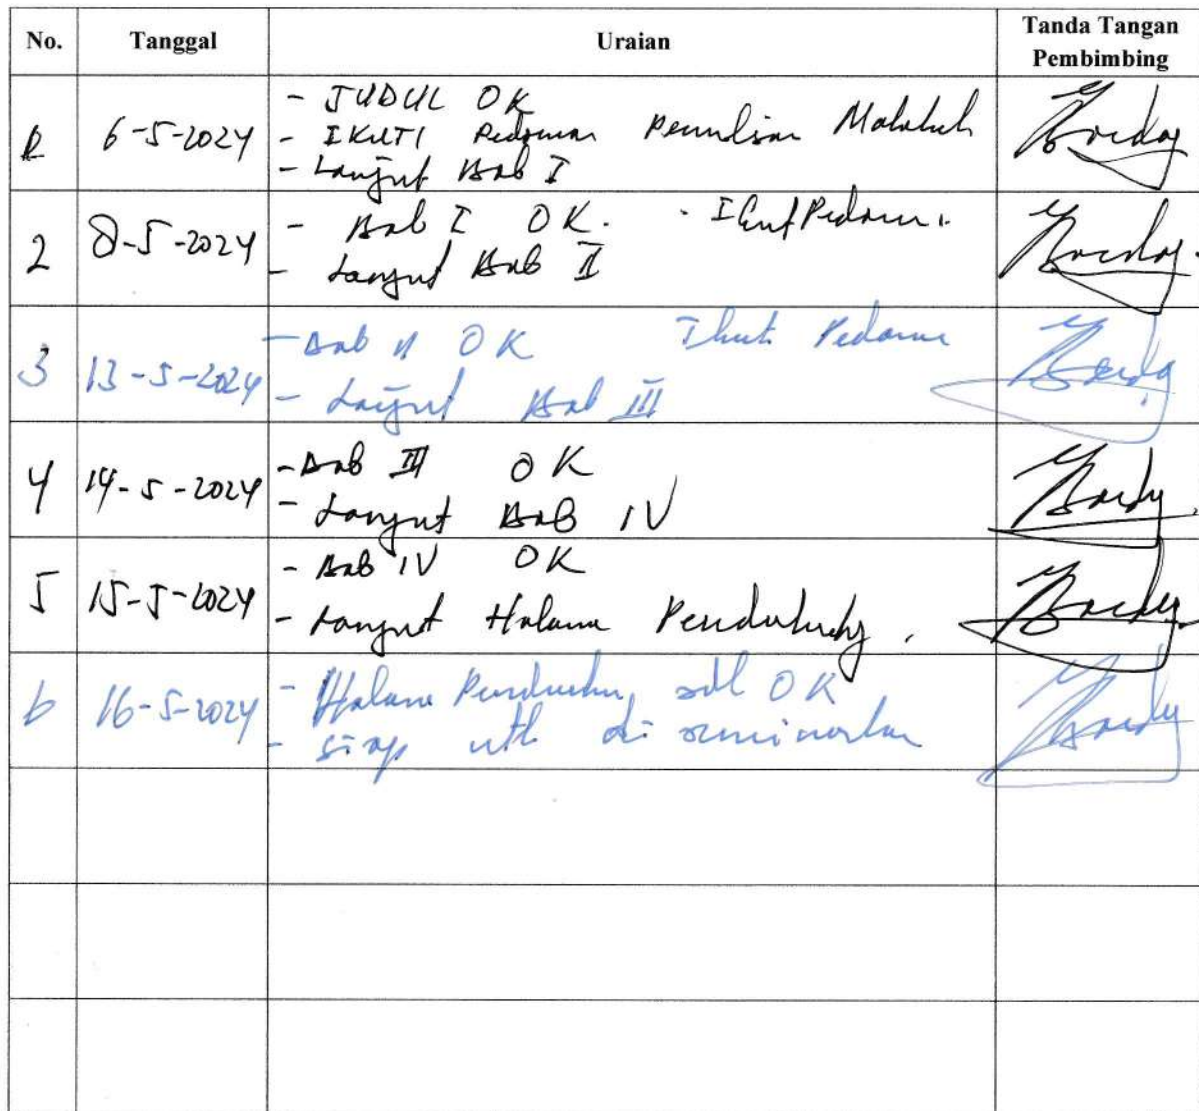 No. Tanggal Uraian Tanda Tangan Pembimbing
1 6-5-2024
- JUDUL OK
- IKUTI Pedoman Penulisan Makalah
- Lanjut Bab I
2 8-5-2024
- Bab I OK. - Ikut Pedoman.
- Lanjut Bab II
3 13-5-2024
- Bab II OK Ikut Pedoman
- Lanjut Bab III
4 14-5-2024
- Bab III OK
- Lanjut Bab IV
5 15-5-2024
- Bab IV OK
- Lanjut Halaman Pendukung.
6 16-5-2024
- Halaman Pendukung sdh OK
- Siap utk di seminarkan